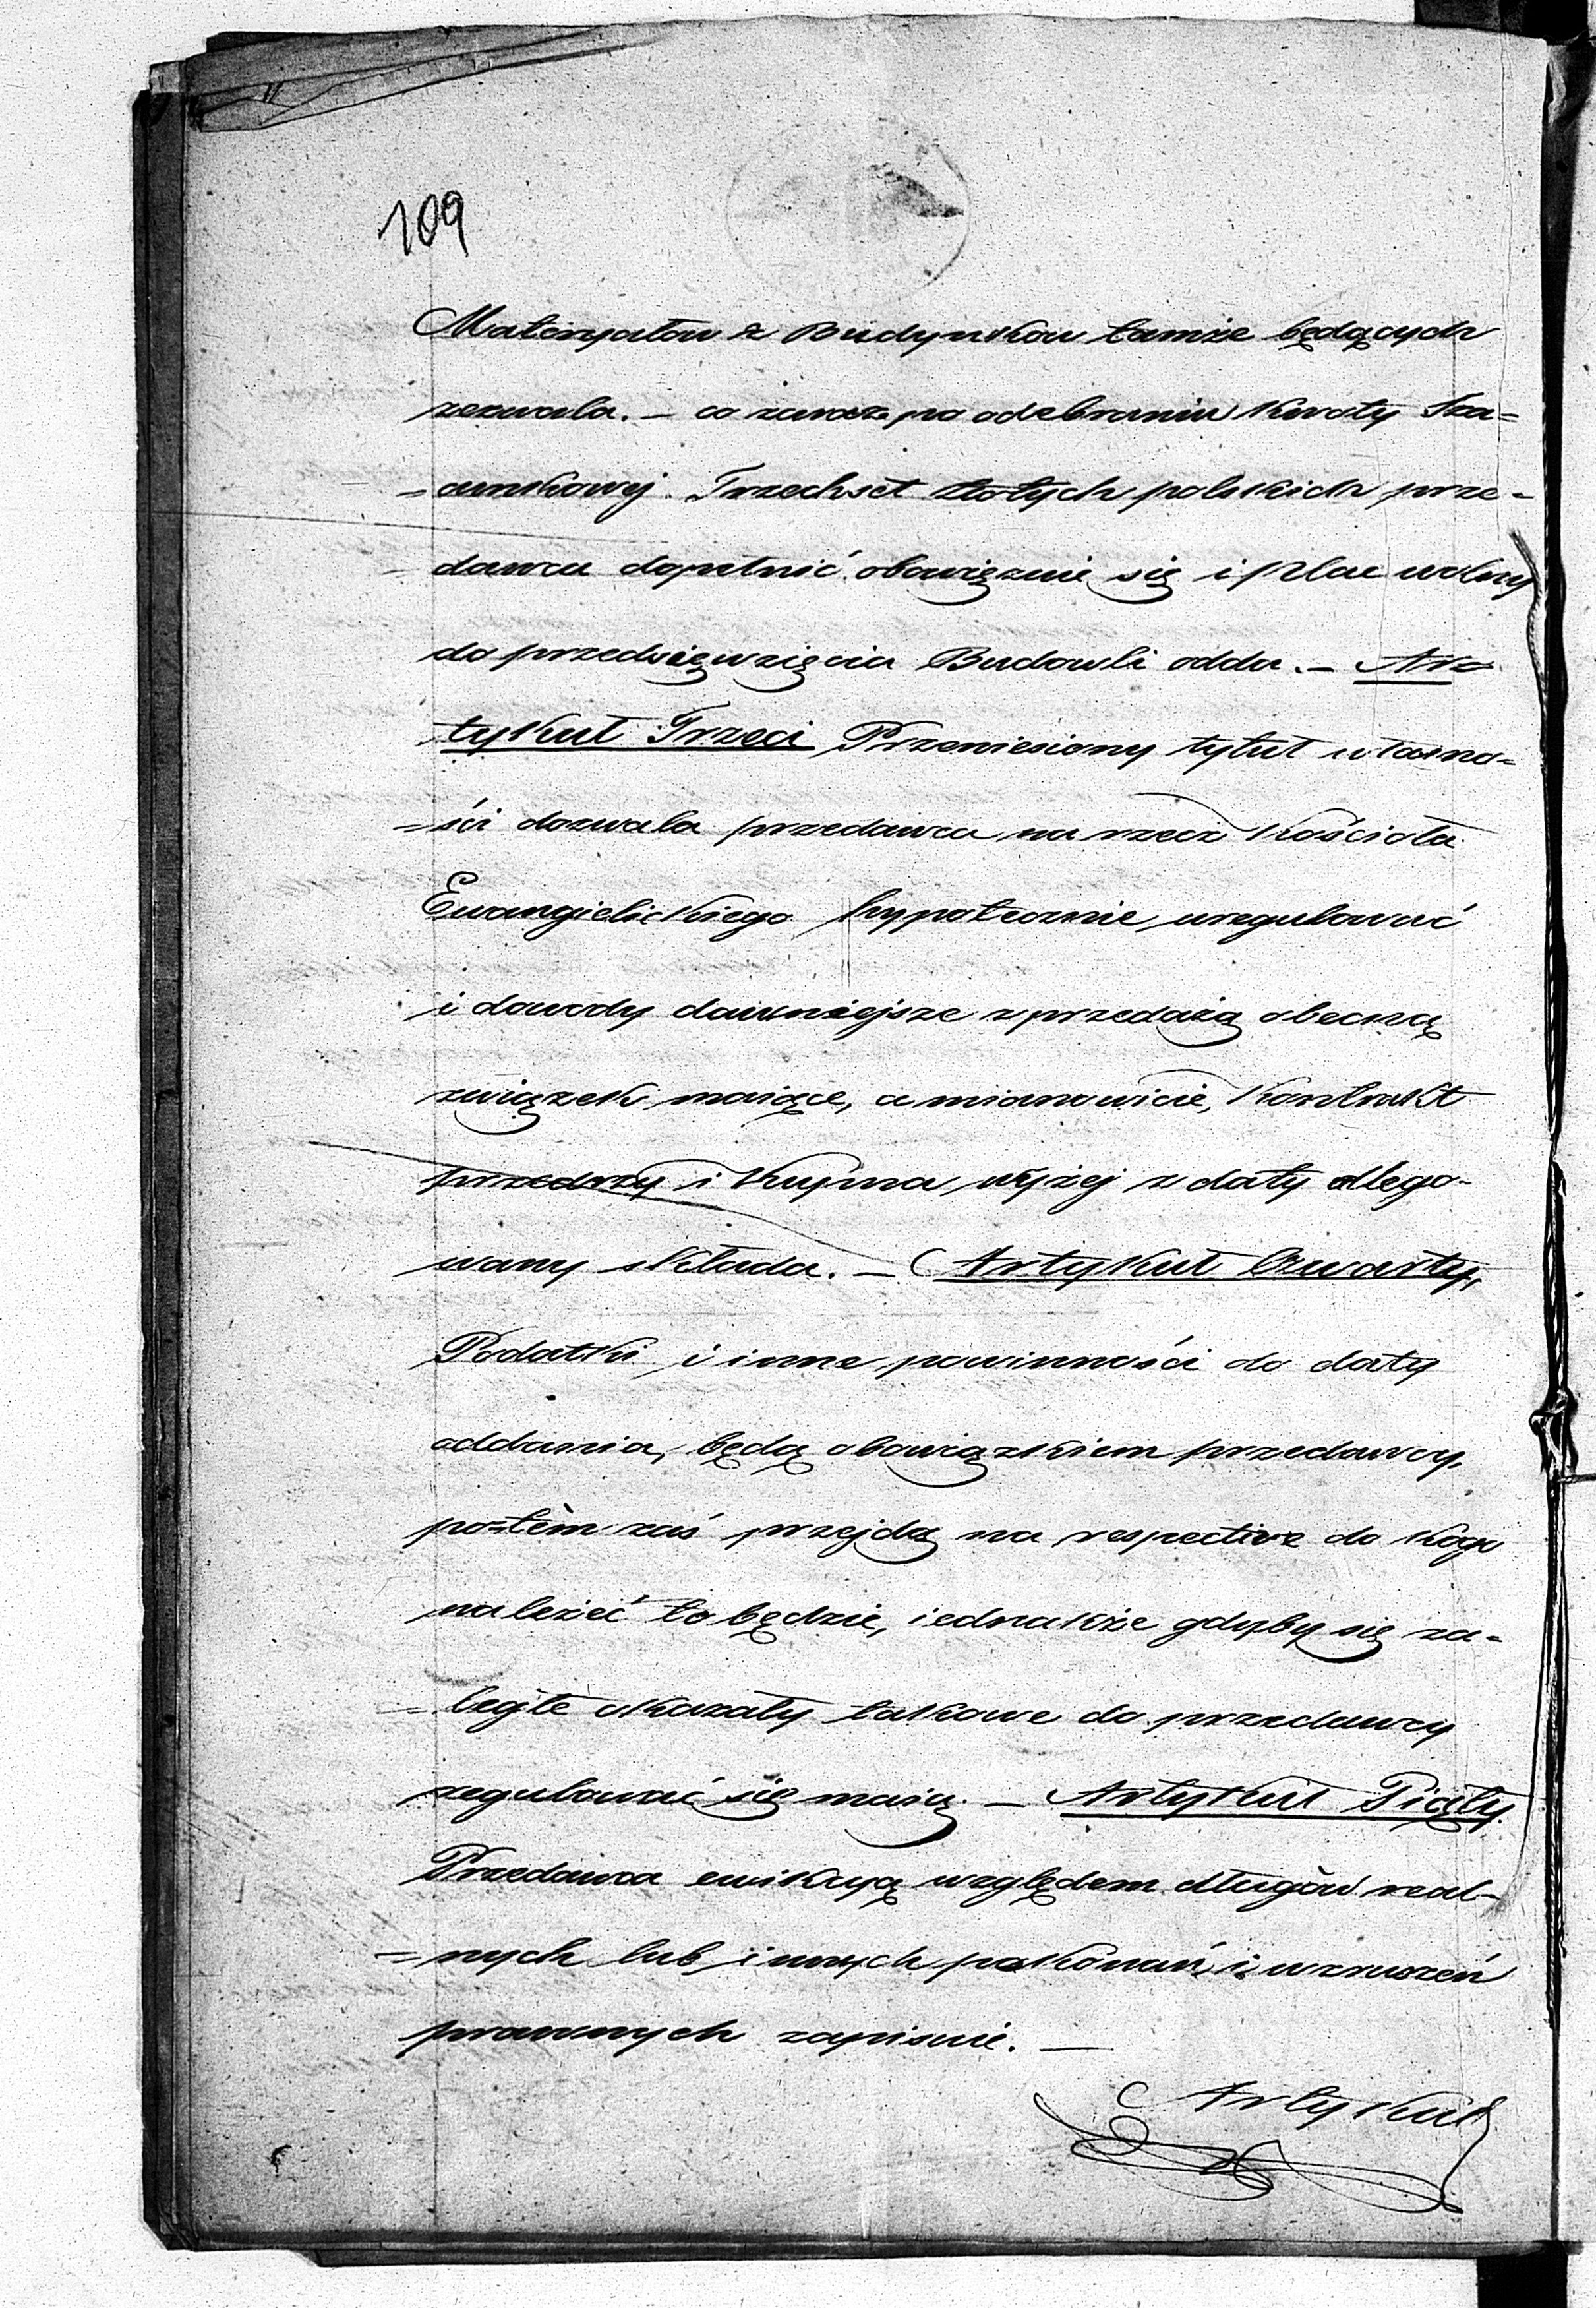 109
Materyałow z Budynkow tamże będących
zezwala. — co zaraz po odebraniu kwoty Sza=
=cunkowej Trzechset złotych polskich prze=
dawca dopełnić obowięzuie się i plac wolny
do przedsięwzięcia Budowli odda. — Ar=
tykuł Trzeci Przeniesiony tytuł własno=
=ści dozwala przedawca na rzecz Kościoła
Ewangielickiego hypotecznie uregulować
i dowody dawniejsze z przedażą obecną
związek maiące, a mianowicie, Kontrakt
przedaży i Kupna wyżej z daty allego=
wany składa. — Artykuł Czwarty,
Podatki i inne powinności do daty
oddania, będą obowiązkiem przedawcy,
potèm zaś przejdą na respective do kogo
należeć to będzie, iednakże gdyby się za=
=ległe okazały takowe do przedawcy
regulować się maią. — Artykuł Piąty.
Przedawca ewikcyą względem długów real=
=nych lub innych pokonań i wzruszeń
prawnych zapisuie. —
Artykuł